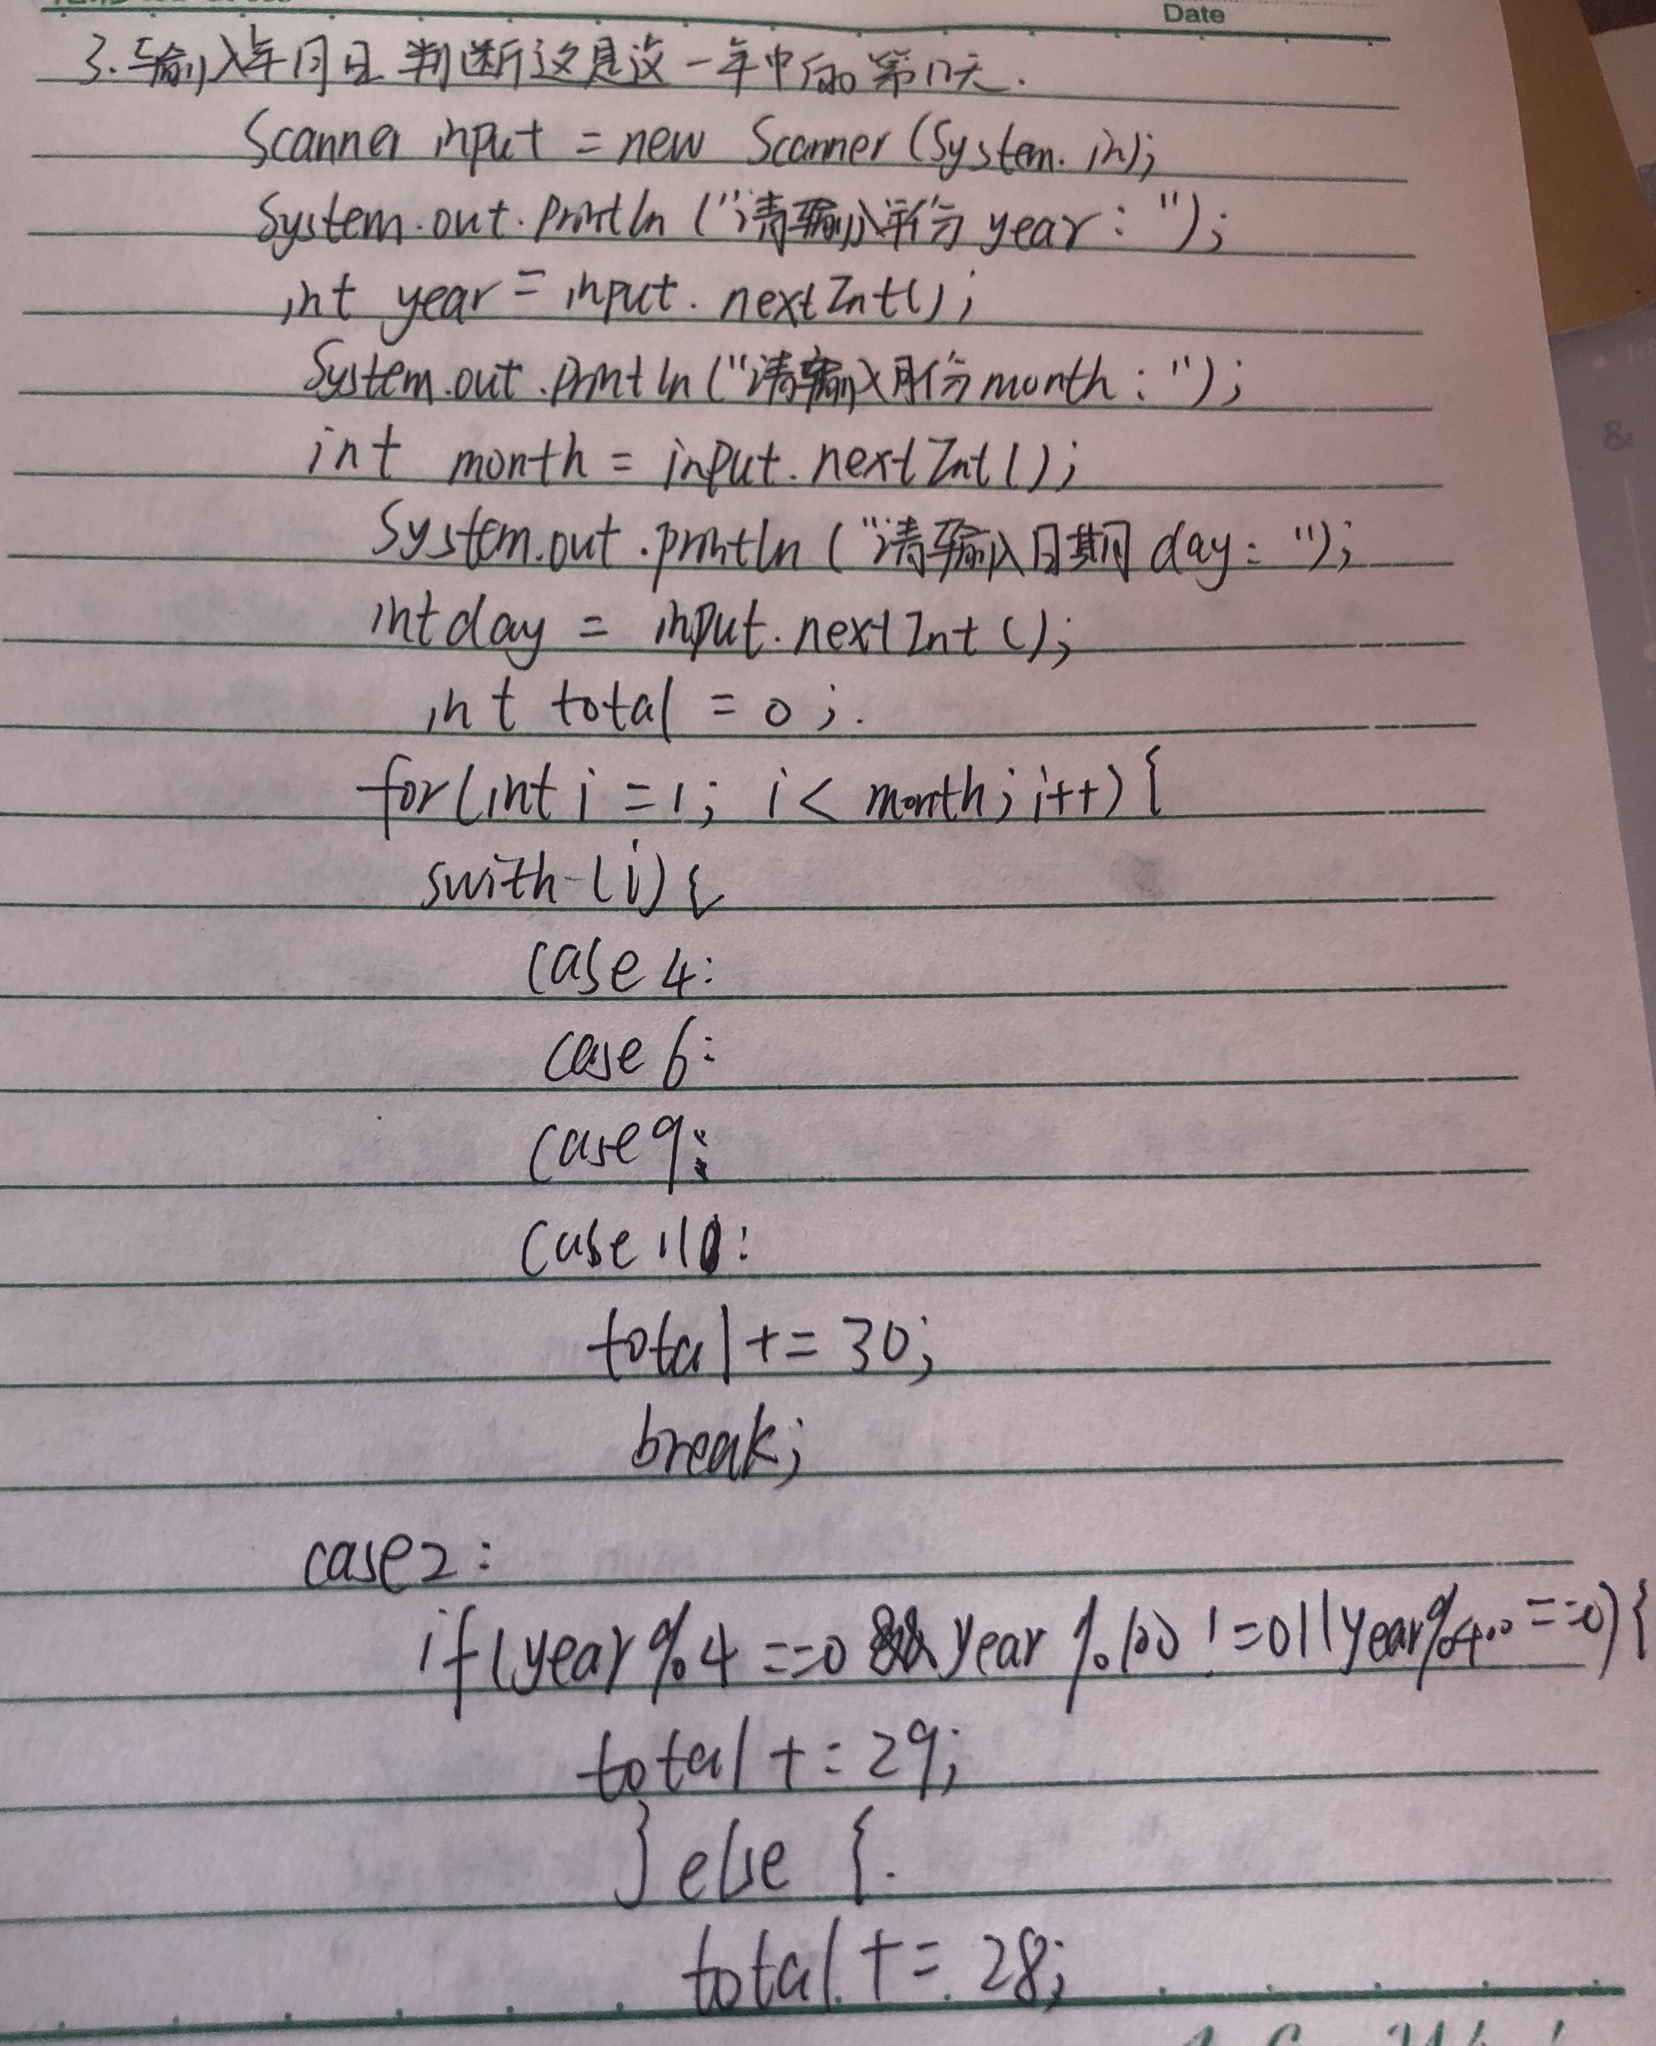 Date
3.输入年月日 判断这是这一年中的第几天.
Scanner input = new Scanner (System. in);
System.out.println ("请输入年份 year: ");
int year = input. nextInt();
System.out.println ("请输入月份month: ");
int month = input. nextInt();
System.out.println ("请输入日期 day: ");
int day = input. nextInt ();
int total = 0;.
for(int i =1; i < month; i++) {
swith (i) {
case 4:
case 6:
case 9:
case 11:
total += 30;
break;
case 2:
if (year % 4 ==0 && year % 100 !=0||year%400 ==0) {
total += 29;
} else {.
total += 28;